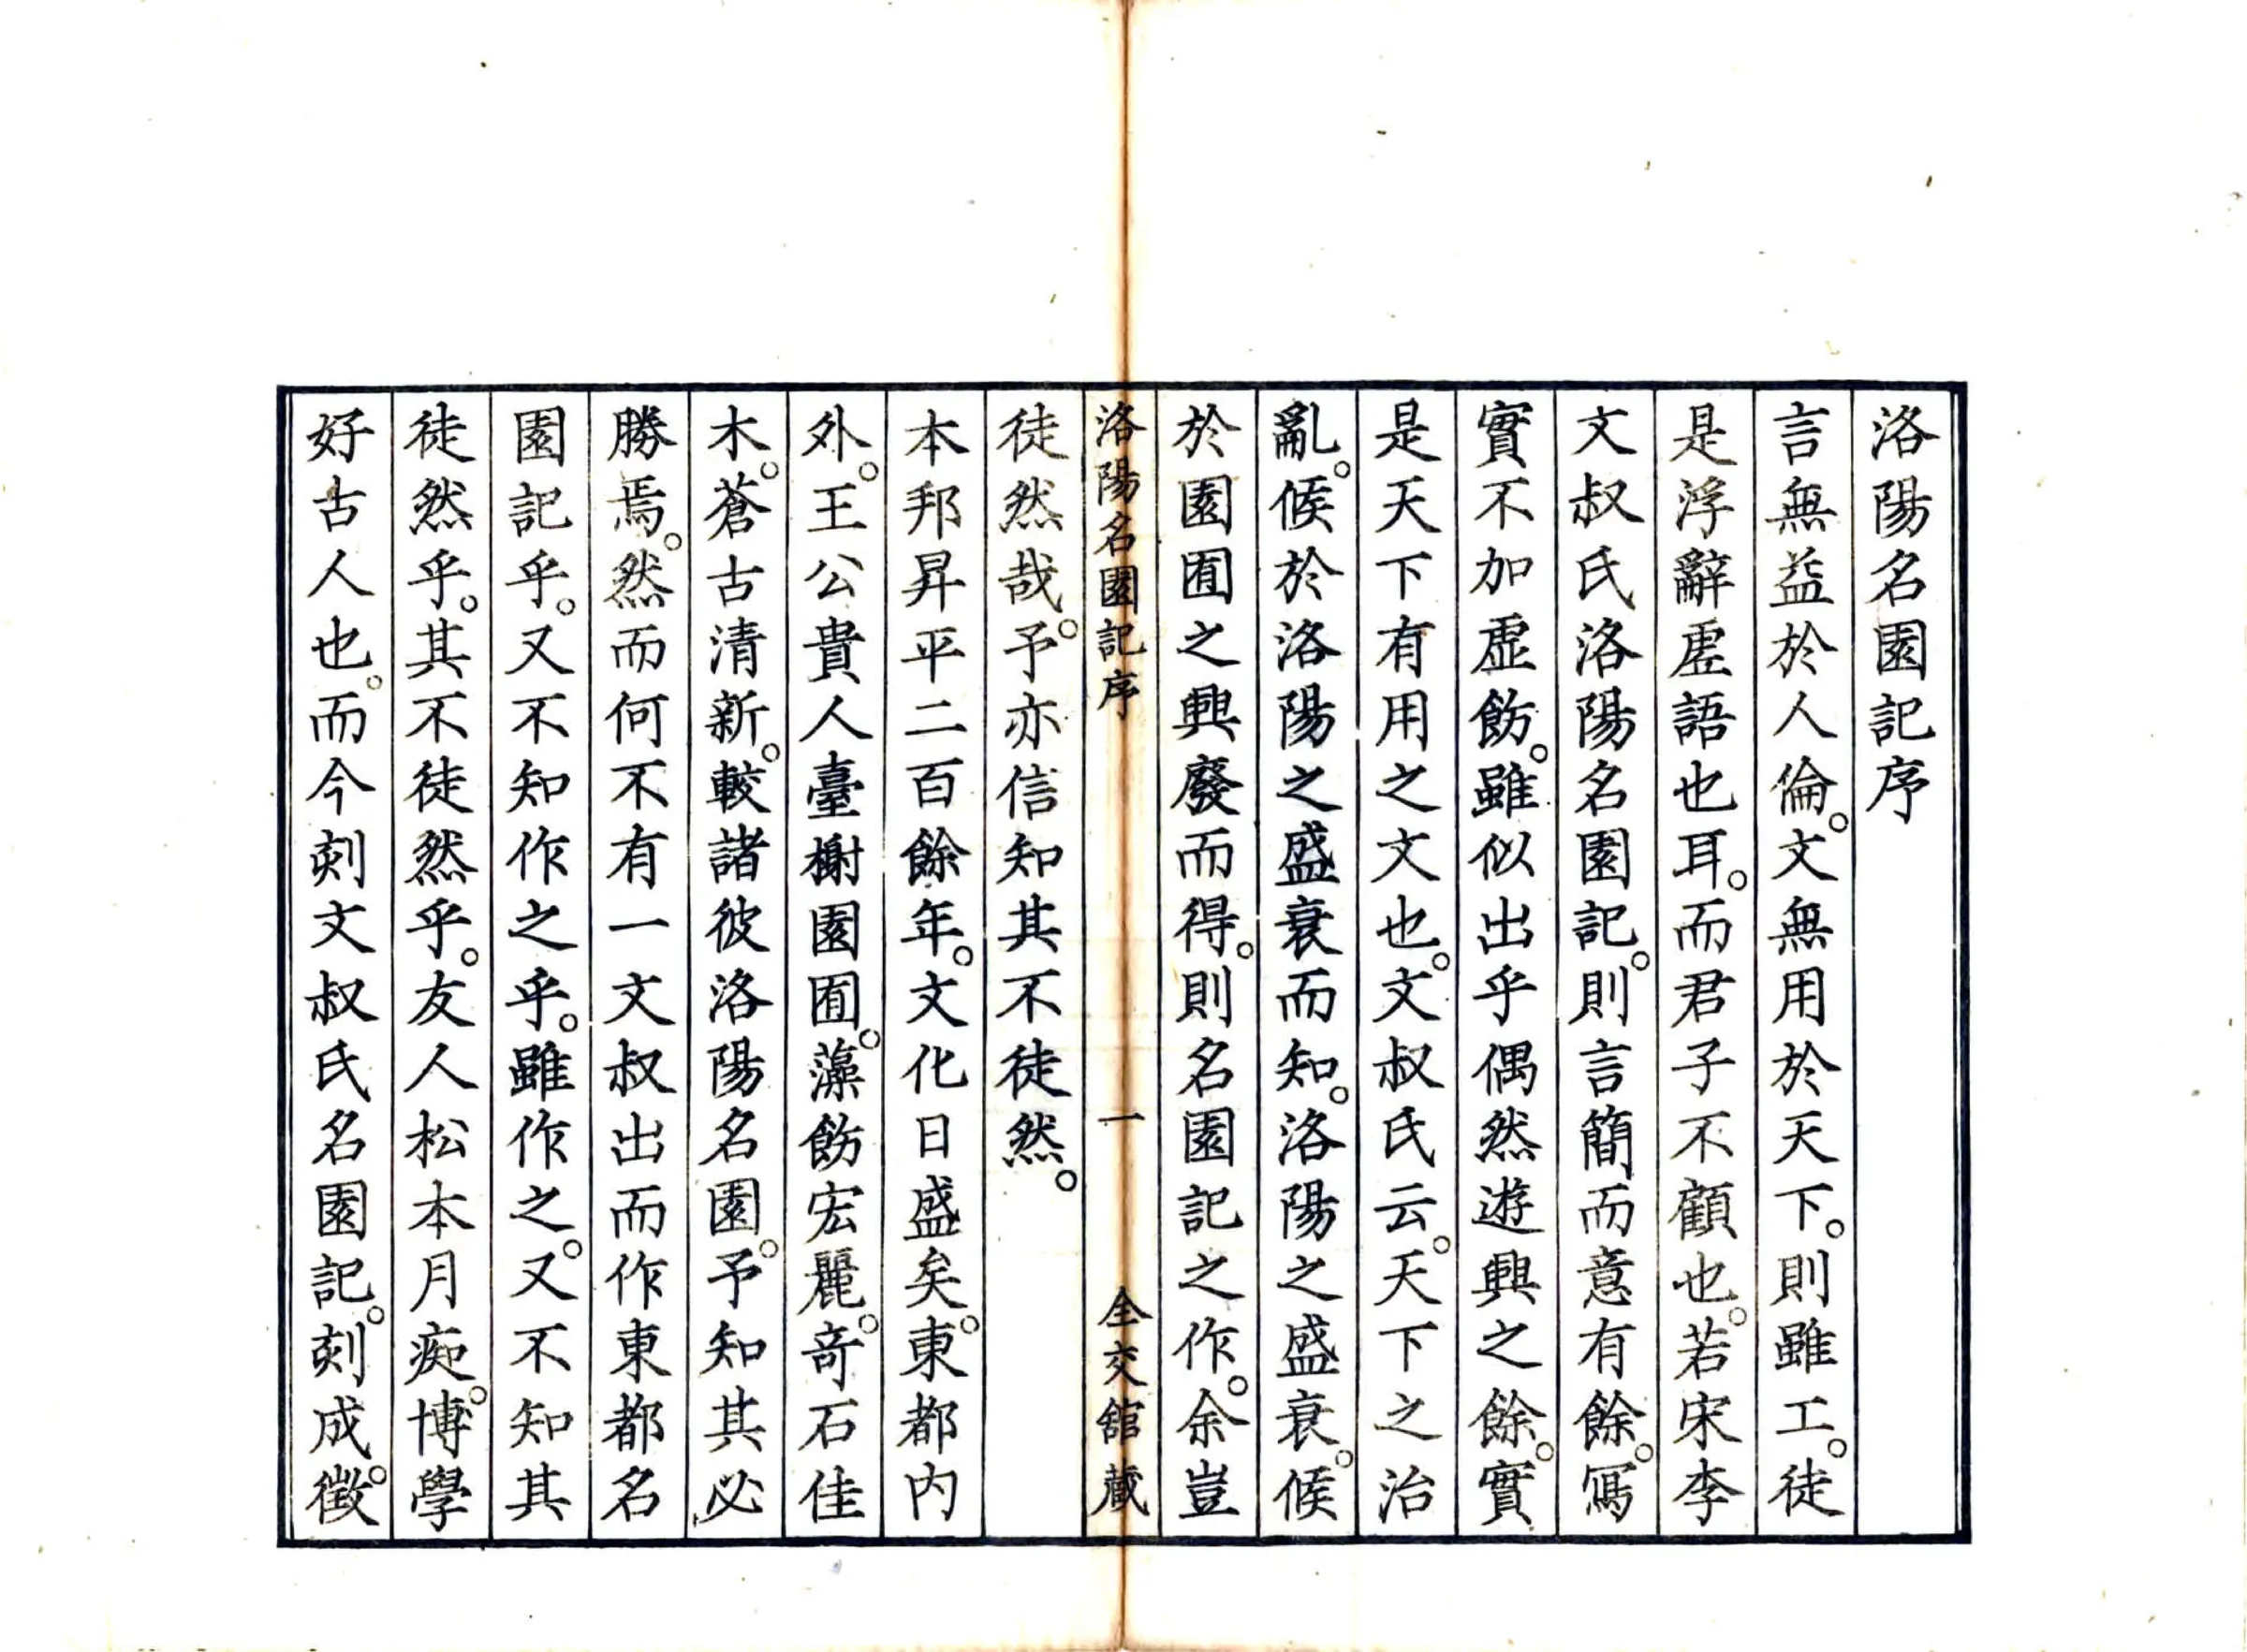 洛陽名園記序
言無益於人倫。文無用於天下。則雖工。徒
是浮辭虛語也耳。而君子不顧也。若宋李
文叔氏洛陽名園記。則言簡而意有餘。寫
實不加虛飭。雖似出乎偶然遊興之餘。實
是天下有用之文也。文叔氏云。天下之治
亂。候於洛陽之盛衰而知。洛陽之盛衰。候
於園囿之興廢而得。則名園記之作。余豈
洛陽名園記序 一 全交舘藏
徒然哉。予亦信知其不徒然。
本邦昇平二百餘年。文化日盛矣。東都内
外。王公貴人臺榭園囿。藻飭宏麗。奇石佳
木。蒼古清新。較諸彼洛陽名園。予知其必
勝焉。然而何不有一文叔出而作東都名
園記乎。又不知作之乎。雖作之。又不知其
徒然乎。其不徒然乎。友人松本月痴。博學
好古人也。而今刻文叔氏名園記。刻成。徵